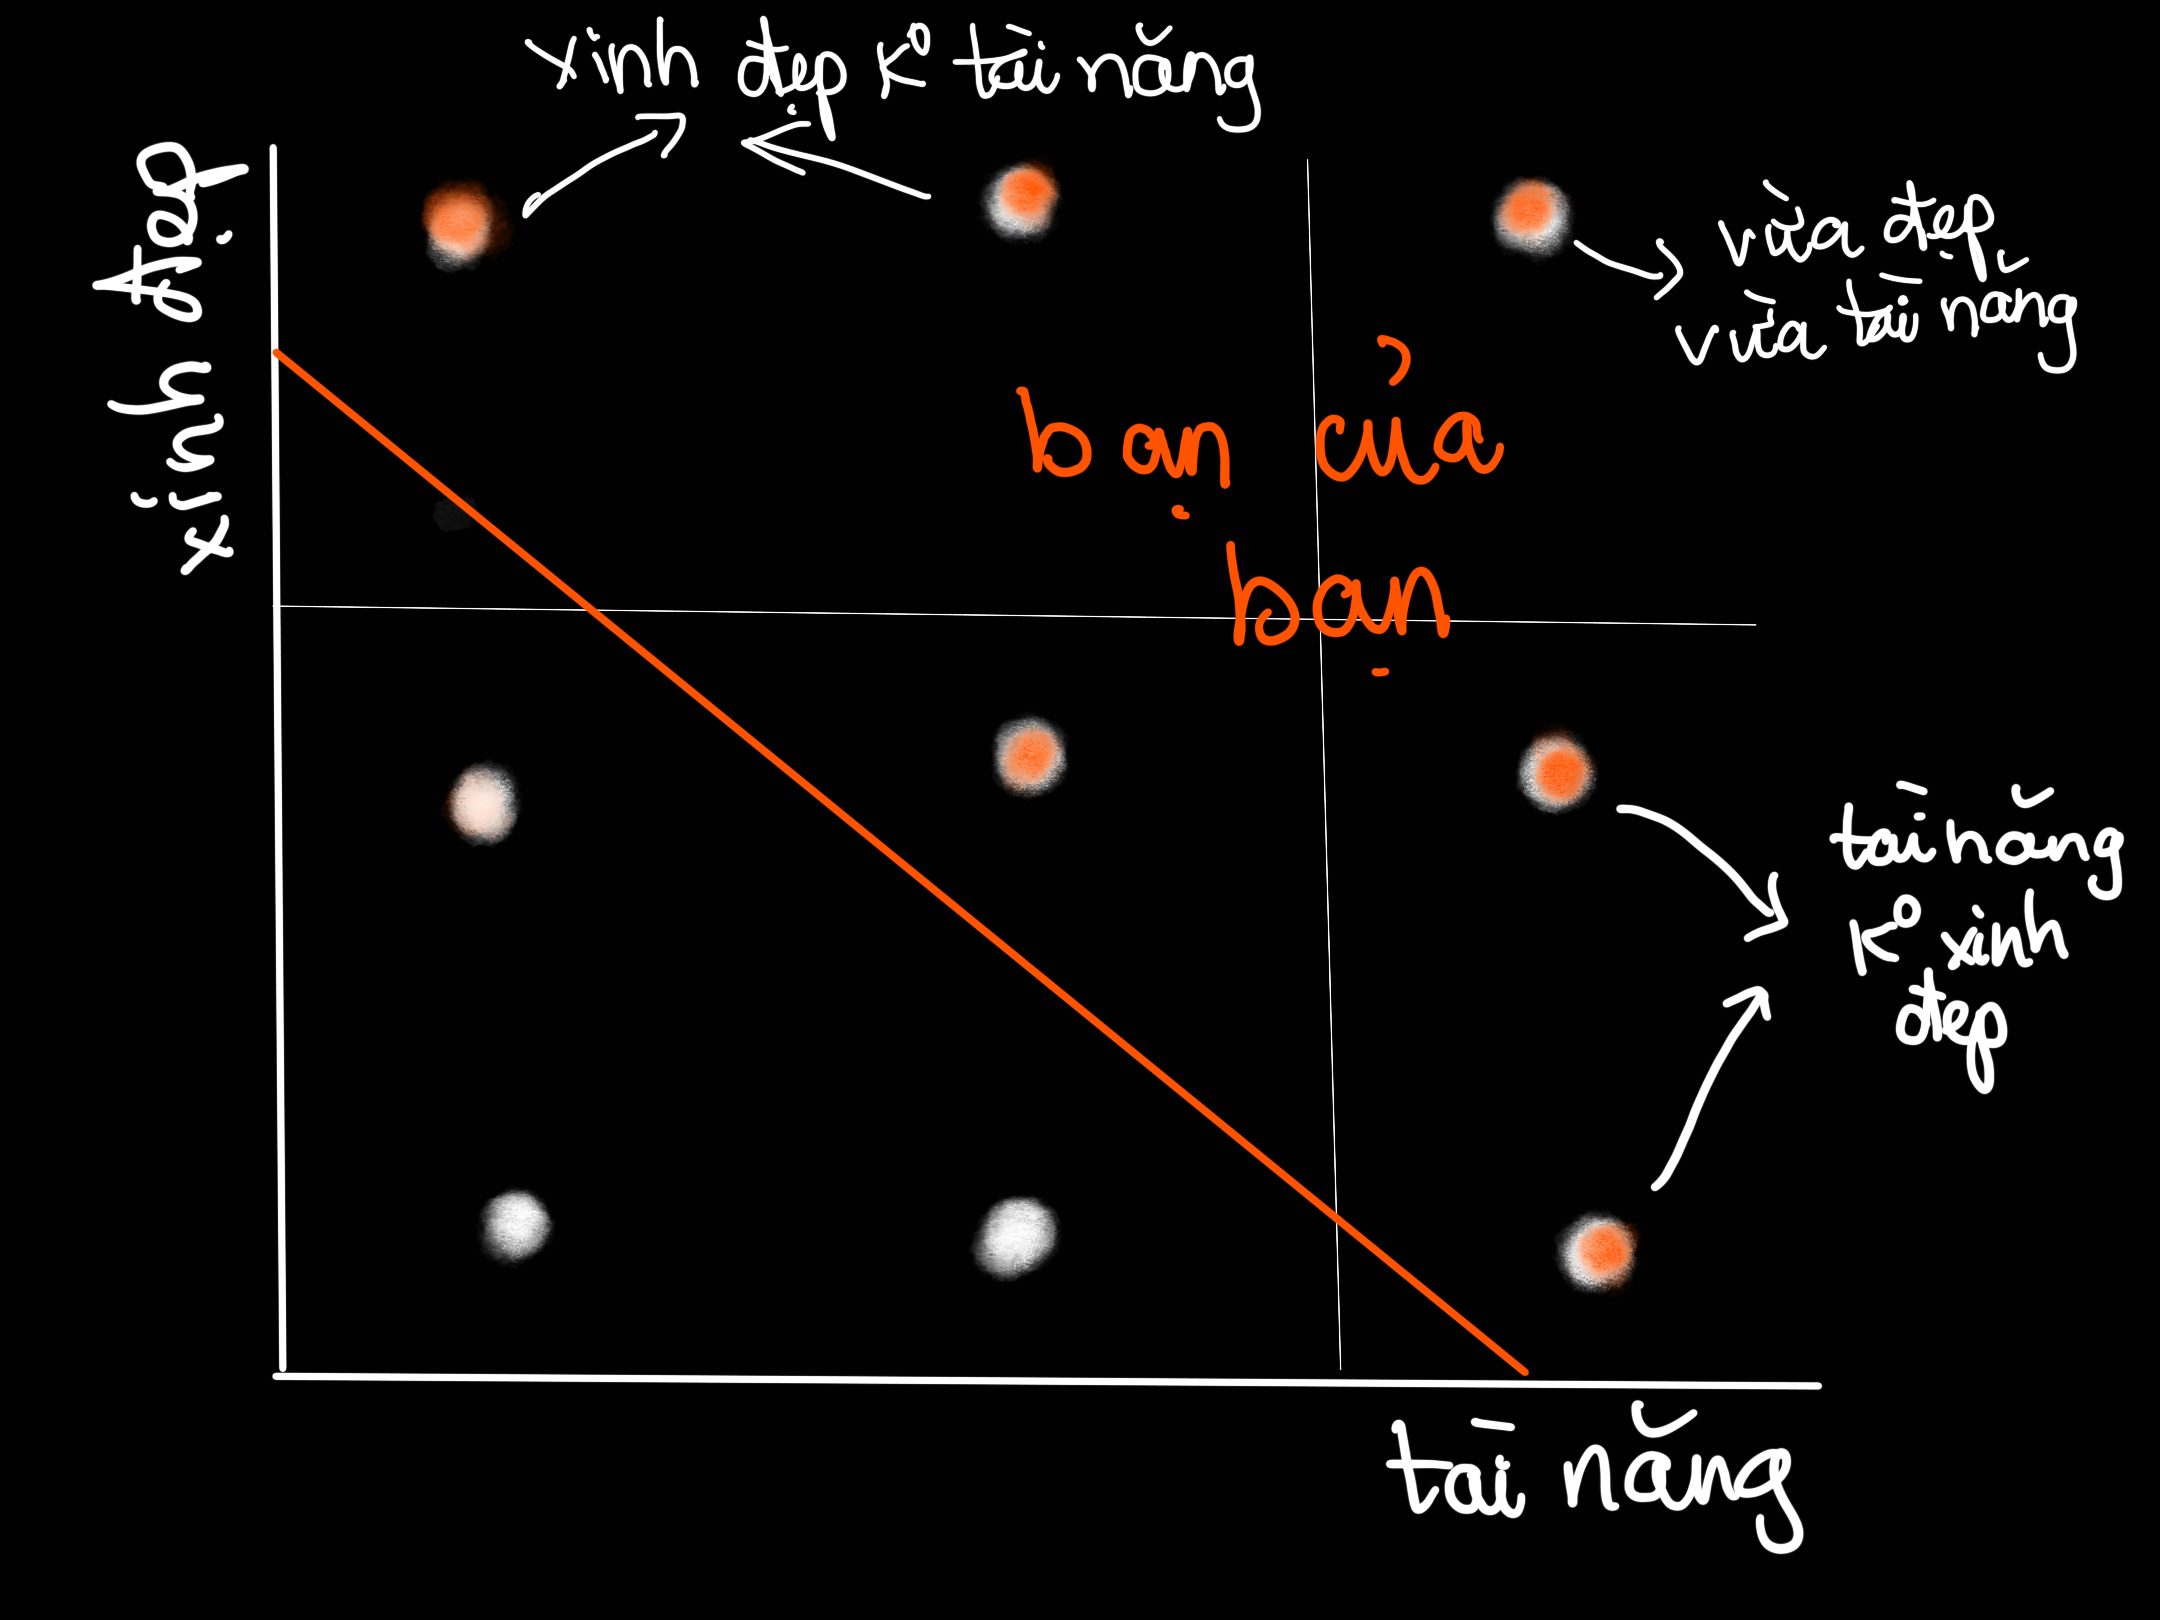 xinh đẹp k° tài năng
xinh đẹp
vừa đẹp
vừa tài năng
bạn của
bạn
tài năng
k° xinh
đẹp
tài năng